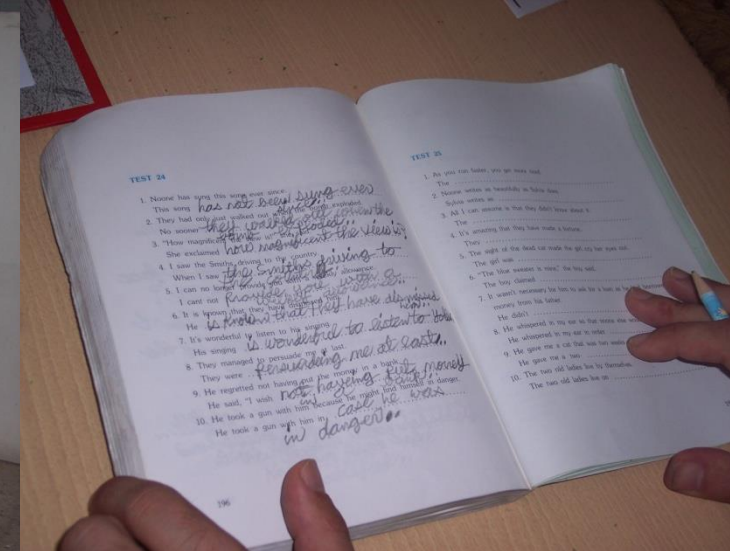 TEST 24
1. Noone has sung this song ever since.
This song has not been sung ever
since..
2. They had only just walked out when the bomb exploded.
No sooner they walked out when the
bomb exploded..
3. "How magnificent the view is"
She exclaimed how magnificent the view is..
4. I saw the Smiths driving to the country.
When I saw the Smiths driving to
5. I can no longer provide you with allowance.
I cant not provide you with a
allowance..
6. It is known that they have
He is known that they have
7. It's wonderful to listen to his singing.
His singing is wonderful to listen to
8. They managed to persuade me at last.
They were persuadeing me at last..
9. He regretted not having put the money in a bank.
He said, "I wish not hayeing put money
in bank..
10. He took a gun with him because he might find himself in danger.
He took a gun with him in case he was
in danger..
196
TEST 25
1. As you run faster, you get more tired.
The
2. Noone writes as beautifully as Sylvie does.
Sylvie writes as
3. All I can assume is that they didn't know about it.
The
4. It's amazing that they have made a fortune.
They
5. The sight of the dead cat made the girl cry her eyes out.
The girl was
6. "The blue sweater is mine," the boy said.
The boy claimed
7. It wasn't necessary for him to ask for a loan as he had borrowed
money from his father.
He didn't
8. He whispered in my ear so that noone else
He whispered in my ear in order
9. He gave me a call that was two
He gave me a two
10. The two old ladies live by themselves.
The two old ladies live on